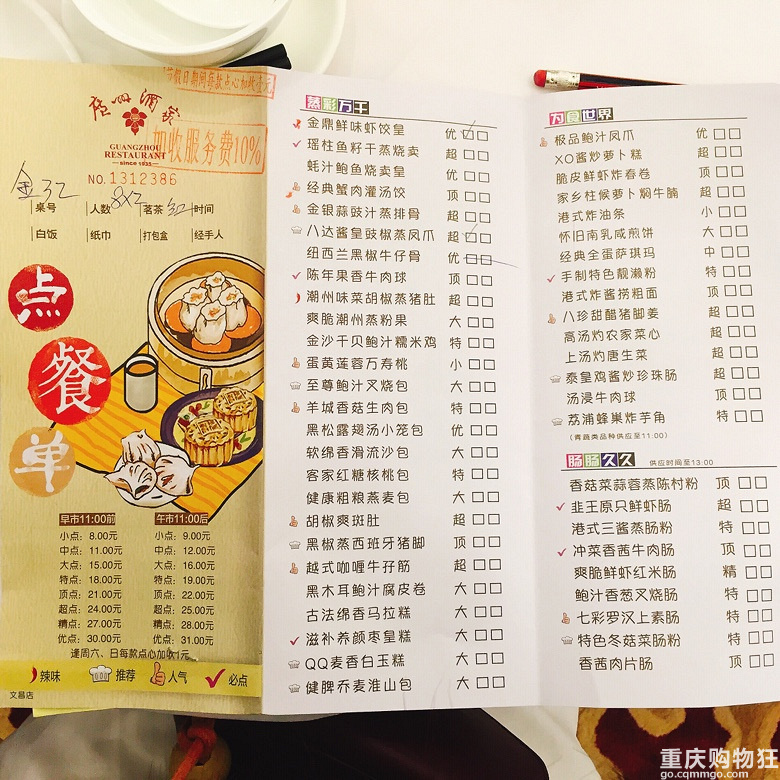 节假日期间每款点心加收壹元
广州酒家
GUANGZHOU
RESTAURANT
since 1935
加收服务费10%
NO.1312386
桌号 人数 茗茶 时间
白饭 纸巾 打包盒 经手人
点
餐
单
早市11:00前 午市11:00后
小点: 8.00元 小点: 9.00元
中点: 11.00元 中点: 12.00元
大点: 15.00元 大点: 16.00元
特点: 18.00元 特点: 19.00元
顶点: 21.00元 顶点: 22.00元
超点: 24.00元 超点: 25.00元
精点: 27.00元 精点: 28.00元
优点: 30.00元 优点: 31.00元
逢周六、日每款点心加收1元
辣味 推荐 人气 必点
文昌店
蒸彩万千
金鼎鲜味虾饺皇 优
瑶柱鱼籽干蒸烧卖 超
蚝汁鲍鱼烧卖皇 优
经典蟹肉灌汤饺 顶
金银蒜豉汁蒸排骨 超
八达酱皇豉椒蒸凤爪 超
纽西兰黑椒牛仔骨 优
陈年果香牛肉球 顶
潮州味菜胡椒蒸猪肚 超
爽脆潮州蒸粉果 大
金沙干贝鲍汁糯米鸡 特
蛋黄莲蓉万寿桃 小
至尊鲍汁叉烧包 大
羊城香菇生肉包 特
黑松露翅汤小笼包 优
软绵香滑流沙包 大
客家红糖核桃包 特
健康粗粮燕麦包 大
胡椒爽斑肚 超
黑椒蒸西班牙猪脚 顶
越式咖喱牛孖筋 超
黑木耳鲍汁腐皮卷 大
古法绵香马拉糕 大
滋补养颜枣皇糕 大
QQ麦香白玉糕 大
健脾乔麦淮山包 大
为食世界
极品鲍汁凤爪 优
XO酱炒萝卜糕 超
脆皮鲜虾炸春卷 顶
家乡柱候萝卜焖牛腩 超
港式炸油条 小
怀旧南乳咸煎饼 大
经典全蛋萨琪玛 中
手制特色靓濑粉 特
港式炸酱捞粗面 顶
八珍甜醋猪脚姜 超
高汤灼农家菜心 超
上汤灼唐生菜 超
泰皇鸡酱炒珍珠肠 超
汤浸牛肉球 顶
荔浦蜂巢炸芋角 特
(青蔬类品种供应至11:00)
肠肠久久 供应时间至13:00
香菇菜蒜蓉蒸陈村粉 顶
韭王原只鲜虾肠 超
港式三酱蒸肠粉 特
冲菜香茜牛肉肠 顶
爽脆鲜虾红米肠 精
鲍汁香葱叉烧肠 特
七彩罗汉上素肠 特
特色冬菇菜肠粉 特
香茜肉片肠 顶
重庆购物狂
go.cqmmgo.com